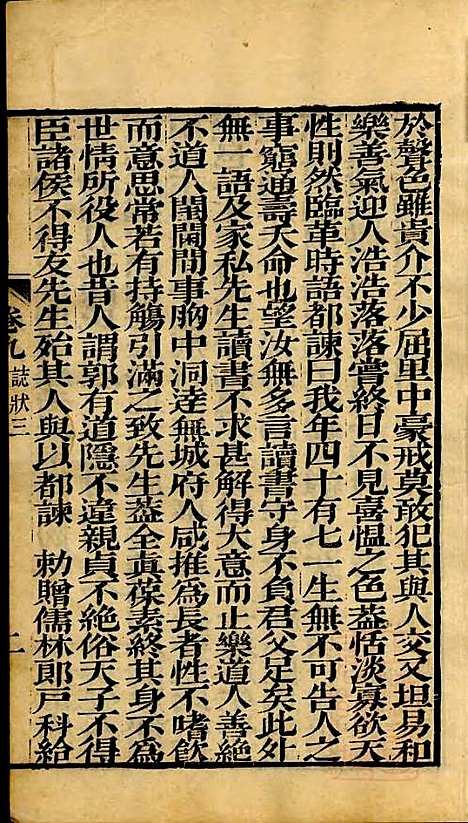 於聲色雖貴介不少屈里中豪戒莫敢犯其與人交又坦易和
樂善氣迎人浩浩落落嘗終日不見喜慍之色葢恬淡寡欲天
性則然臨革時語都諫曰我年四十有七一生無不可告人之
事窮通壽夭命也望汝無多言讀書守身不負君父足矣此外
無一語及家私先生讀書不求甚解得大意而止樂道人善絶
不道人閨閫間事胸中洞達無城府人咸推為長者性不嗜飲
而意思常若有持觴引滿之致先生葢全真葆素終其身不為
世情所役人也昔人謂郭有道隱不違親貞不絶俗天子不得
臣諸侯不得友先生殆其人與以都諫 勅贈儒林郎戸科給
卷九 誌狀三 二